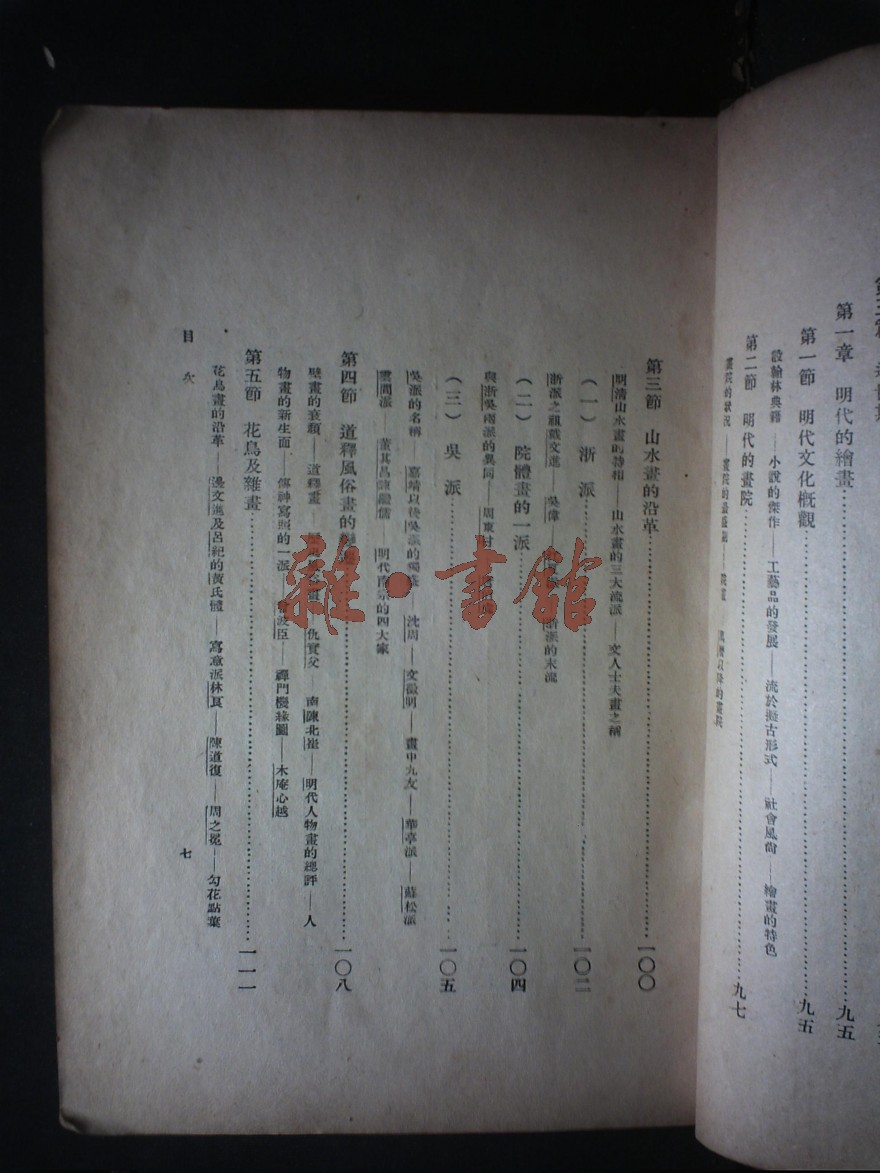 第一章　明代的繪畫……九五
第一節　明代文化概觀……九五
設翰林典籍——小說的傑作——工藝品的發展——流於擬古形式——社會風尙——繪畫的特色
第二節　明代的畫院……九七
畫院的狀況——畫院的最盛期——以降的畫院
第三節　山水畫的沿革……一〇〇
明清山水畫的特相——山水畫的三大流派——文人士夫畫之稱
（一）浙派……一〇二
浙派之祖戴文進——吳偉——浙派的末流
（二）院體畫的一派……一〇四
與浙吳兩派的異同——周東村
（三）吳派……一〇五
吳派的名稱——嘉靖以後吳派的獨盛——沈周——文徵明——畫中九友——華亭派——蘇松派
雲間派——董其昌陳繼儒　明代南宗的四大家
第四節　道釋風俗畫的……一〇八
壁畫的衰頹——道釋畫——仇實父　南陳北崔——明代人物畫的總評——人
物畫的新生面——傳神寫照的一派——曾波臣——禪門機緣圖——木庵心越
第五節　花鳥及雜畫……一一一
花鳥畫的沿革——邊文進及呂紀的黃氏體　寫意派林良——陳道復——周之冕——勾花點葉
目次
七
雜·書館